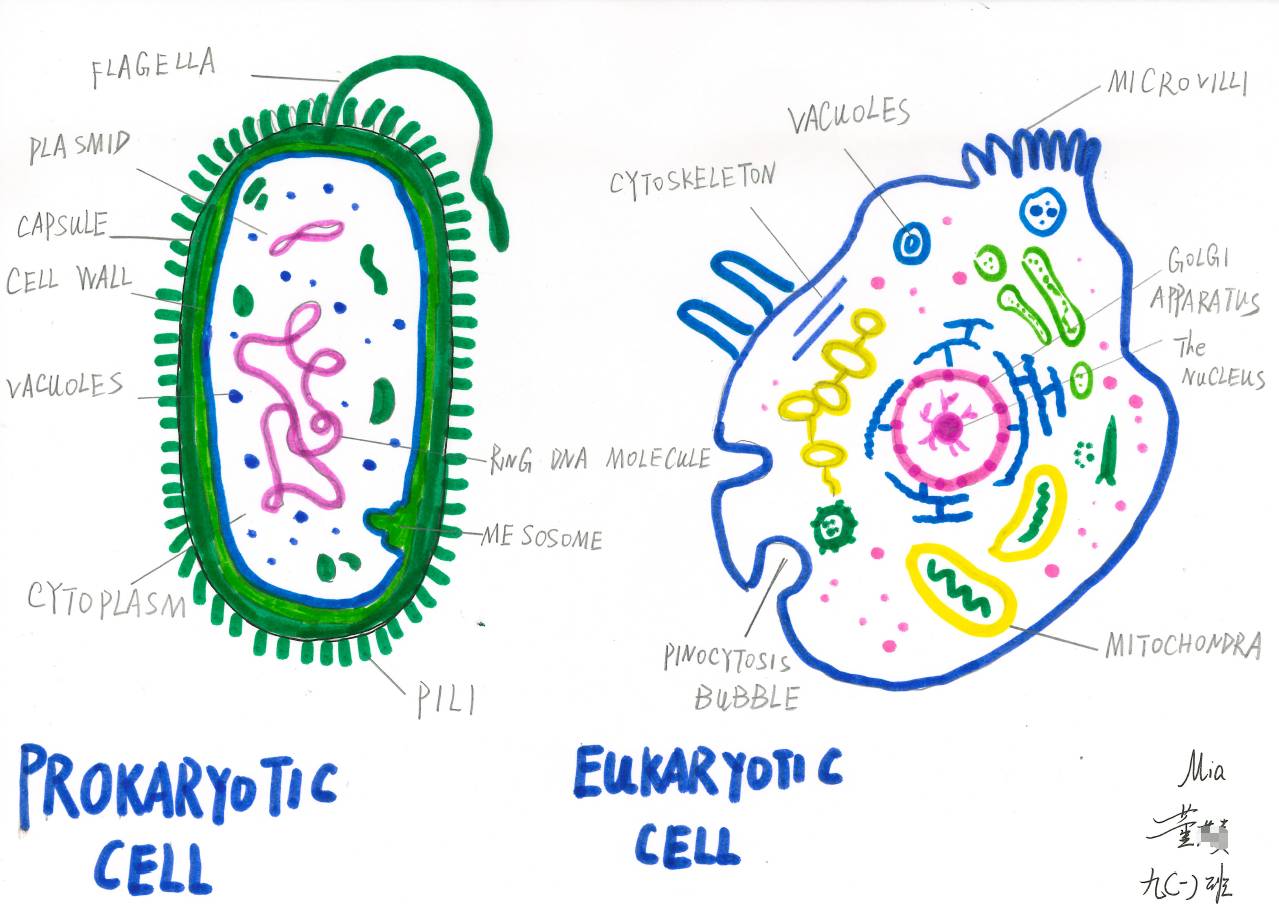 FLAGELLA
PLASMID
CAPSULE
CELL WALL
VACUOLES
CYTOPLASM
RING DNA MOLECULE
MESOSOME
PILI
PROKARYOTIC
CELL
MICROVILLI
VACUOLES
CYTOSKELETON
GOLGI
APPARATUS
The
NUCLEUS
PINOCYTOSIS
BUBBLE
MITOCHONDRA
EUKARYOTIC
CELL
Mia
董
九(一)班